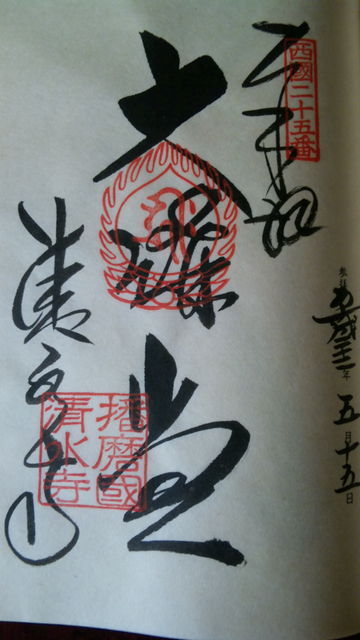 年五月十五日
奉拝
西國二十五番
大講堂
播磨國
清水寺
清水寺